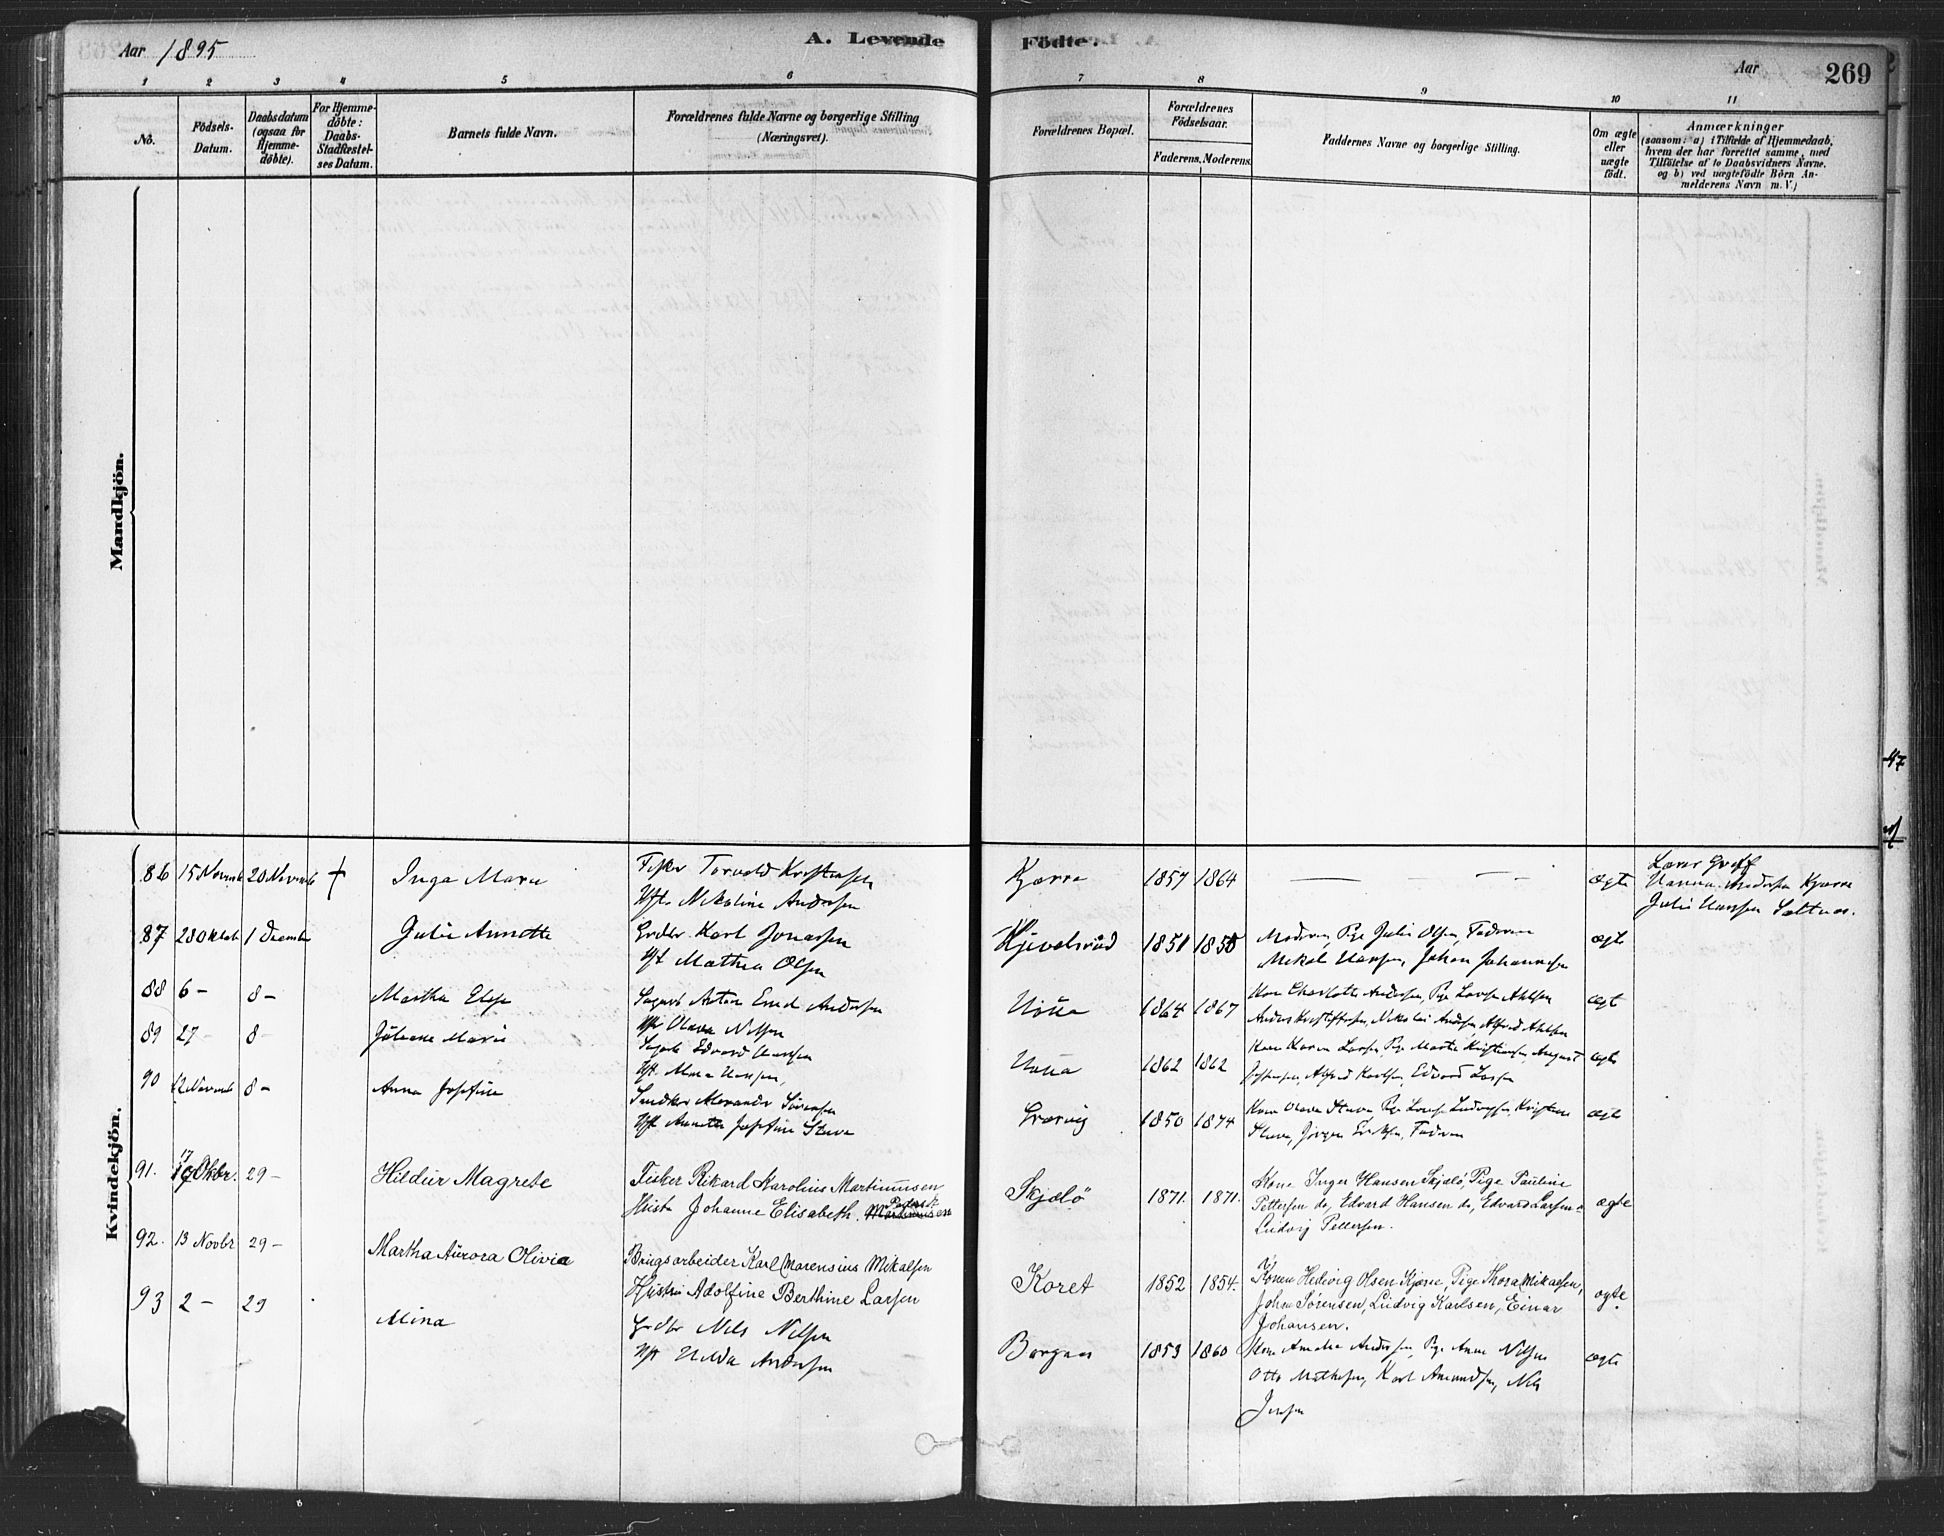 Aar 1895
A. Levende
Födte.
Aar
269
1 2 3 4 5 6 7 8 9 10 11
No.
Födsels-
Datum.
Daabsdatum
(ogsaa for
Hjemme-
döbte).
For Hjemme-
döbte:
Daabs-
Stadfæstel-
ses Datum.
Barnets fulde Navn.
Forældrenes fulde Navne og borgerlige Stilling
(Næringsvei).
Forældrenes Bopæl.
Forældrenes
Födselsaar.
Faderens. Moderens.
Faddernes Navne og borgerlige Stilling.
Om ægte
eller
uægte
födt.
Anmærkninger
(saasom: a) i Tilfælde af Hjemmedaab,
hvem der har forrettet samme, med
Tilföielse af to Daabsvidners Navne,
og b) ved uægtefödte Börn An-
melderens Navn m. V.)
Mandkjön.
Kvindekjön.
86 15 Novemb 20 Novemb † Inga Marie
Fisker Torvald Kristensen
Hst. Nikoline Andersen
Kjærre 1857 1864 — — — — ægte
Lærer
Hanna Andersen Kjærre
Julie Hansen Saltnes.
87 28 Oktob 1 Decembr Julie Annette
Grdbr. Karl Jonassen
Hst Mathea Olsen
1851 1855
Moderen, Pge Julie Olsen, Faderen
Mikal Hansen, Johan Johannesen
ægte
88 6 – 8 – Martha Elise
Sagarb Anton Emil Andersen
Hst Olava Nilsen
1864 1867
Kone Charlotte Andersen, Pge Lovise Ahlsen
Anders Kristoffersen, Nikolai Andersen Alfred Ahlsen
ægt
89 27 – 8 – Juliane Marie
Sagarb Edvard Hansen
Hst. Hansen,
1862 1862
Kone Karen Larsen, Pge Martha Kristiansen, August
Alfred Karlsen, Edvard Larsen
ægte
90 12 Novemb 8 – Anna Josefine
Snedker Alexander Sørensen
Hst Annette Josefine Stene
1850 1874
Kone Olava Pge Lovise Ludvigsen, Kristian
Jørgen Eriksen, Faderen
ægte
91. 17 Oktbr. 29 – Hildur Magrete
Fisker Rikard Karolius Martinusen
Hustr Johanne Elisabeth Martinusen
Skjælö 1871. 1871.
Kone Inger Hansen Skjælö, Pige Pauline
Pettersen do, Edvard Hansen do, Edvard Larsen do
Ludvig Pettersen.
ægte
92. 13 Novbr 29 – Martha Aurora Olivia
Brugsarbeider Karl Marensius Mikalsen
Hustru Adolfine Berthine Larsen
Koret 1852 1854.
Konen Hedvig Olsen Kjærre, Pige Thora Mikaelsen,
Johan Sørensen, Ludvig Karlsen, Einar
Johansen.
ægte.
93 2 – 29 Mina
Grdbr Nils Nilsen
Hst Hilda Andersen
1853 1860
Kone Amalie Andersen, Pge Anna Nilsen
Otto Mathisen, Karl Amundsen, Nils
Jensen
ægte
47